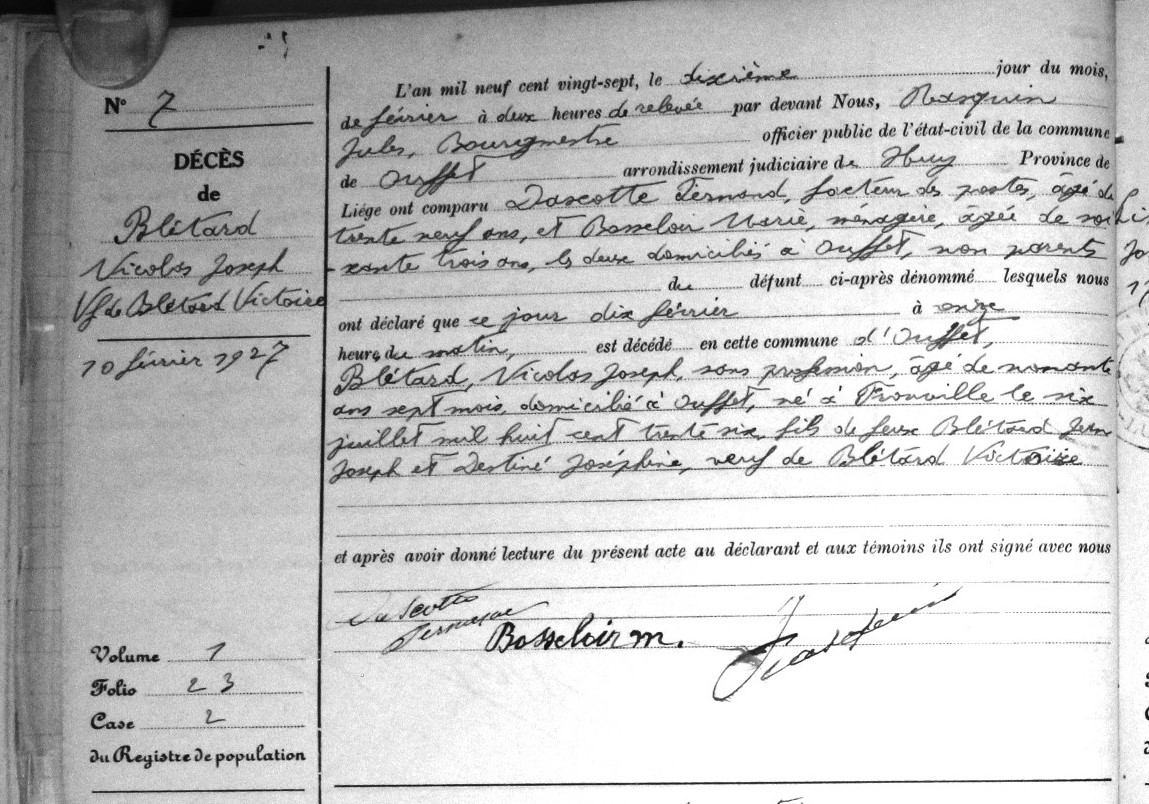 N° 7
DÉCÈS
de
Blétard
Nicolas Joseph
Vf de Blétard Victoire
10 février 1927
Volume 1
Folio 23
Case 2
du Registre de population
L'an mil neuf cent vingt-sept, le dixième jour du mois,
de février à deux heures de relevée par devant Nous, Rasquin
Jules, Bourgmestre officier public de l'état-civil de la commune
de Ouffet arrondissement judiciaire de Huy Province de
Liége ont comparu Dascotte Fernand, facteur des postes, âgé de
trente neuf ans, et Bosseloir Marie, ménagère, âgée de soi
-xante trois ans, les deux domiciliés à Ouffet, non parents
du défunt ci-après dénommé lesquels nous
ont déclaré que ce jour dix février à onze
heures du matin, est décédé en cette commune d'Ouffet,
Blétard, Nicolas Joseph, sans profession, âgé de nonante
ans sept mois, domicilié à Ouffet, né à Fronville le six
juillet mil huit cent trente six, fils de feux Blétard Jean
Joseph et Destiné Joséphine, veuf de Blétard Victoire
et après avoir donné lecture du présent acte au déclarant et aux témoins ils ont signé avec nous
Dascotte
Fernand
Bosseloir m.